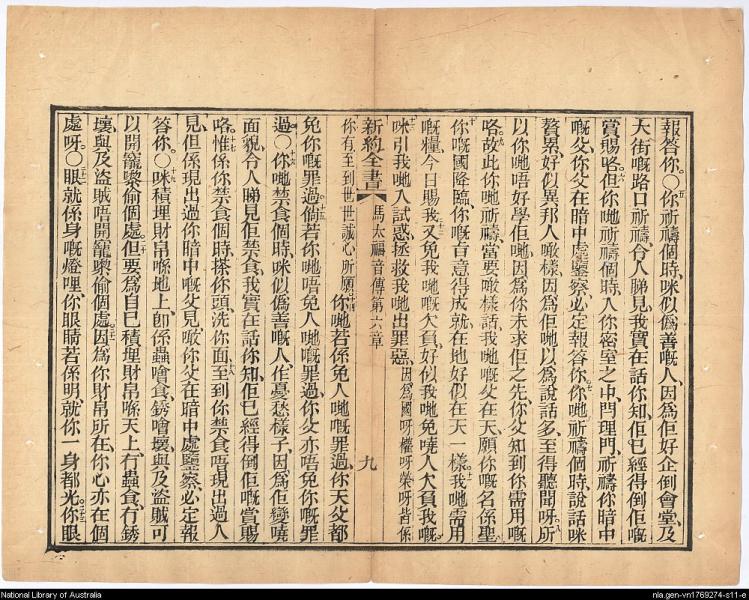 報答你。〇五你祈禱個時、咪似偽善嘅人、因為佢好企倒會堂、及
大街嘅路口祈禱、令人睇見、我實在話你知、佢已經得倒佢嘅
賞賜咯。六但你哋祈禱個時、入你密室之中、閂理門、祈禱你暗中
嘅父、你父在暗中處鑒察、必定報答你。七你哋祈禱個時、說話咪
贅累、好似異邦人噉樣、因為佢哋以為說話多、至得聽聞呀。八所
以你哋唔好學佢哋、因為你未求佢之先、你父知到你需用嘅
咯。九故此你哋祈禱、當要噉樣話、我哋嘅父在天、願你嘅名係聖、
十你嘅國降臨、你嘅旨意得成就、在地好似在天一樣。十一我哋需用
嘅糧、今日賜我。十二又免我哋嘅欠負、好似我哋免曉人欠負我嘅。
十三咪引我哋入試惑、拯救我哋出罪惡、因為國呀、權呀、榮呀、皆係
你有、至到世世、誠心所願。十四你哋若係免人哋嘅罪過、你天父都
新約全書 馬太福音傳第六章 九
免你嘅罪過、十五倘若你哋唔免人哋嘅罪過、你父亦唔免你嘅罪
過。〇十六你哋禁食個時、咪似偽善嘅人、作憂愁樣子、因為佢變曉
面貌、令人睇見佢禁食、我實在話你知、佢已經得倒佢嘅賞賜
咯。十七惟係你禁食個時、搽你頭、洗你面、十八至到你禁食唔現出過人
見、但係現出過你暗中嘅父見、噉你父在暗中處鑒察、必定報
答你。〇十九咪積埋財帛喺地上、卽係蟲噲食、銹噲壞、與及盜賊可
以開窿嚟偷個處。二十但要為自己積埋財帛喺天上、冇蟲食、冇銹
壞、與及盜賊唔開窿嚟偷個處。二一因為你財帛所在、你心亦在個
處呀。〇二二眼就係身嘅燈、哩你眼睛若係明、就你一身都光。二三你眼
National Library of Australia
nla.gen-vn1769274-s11-e